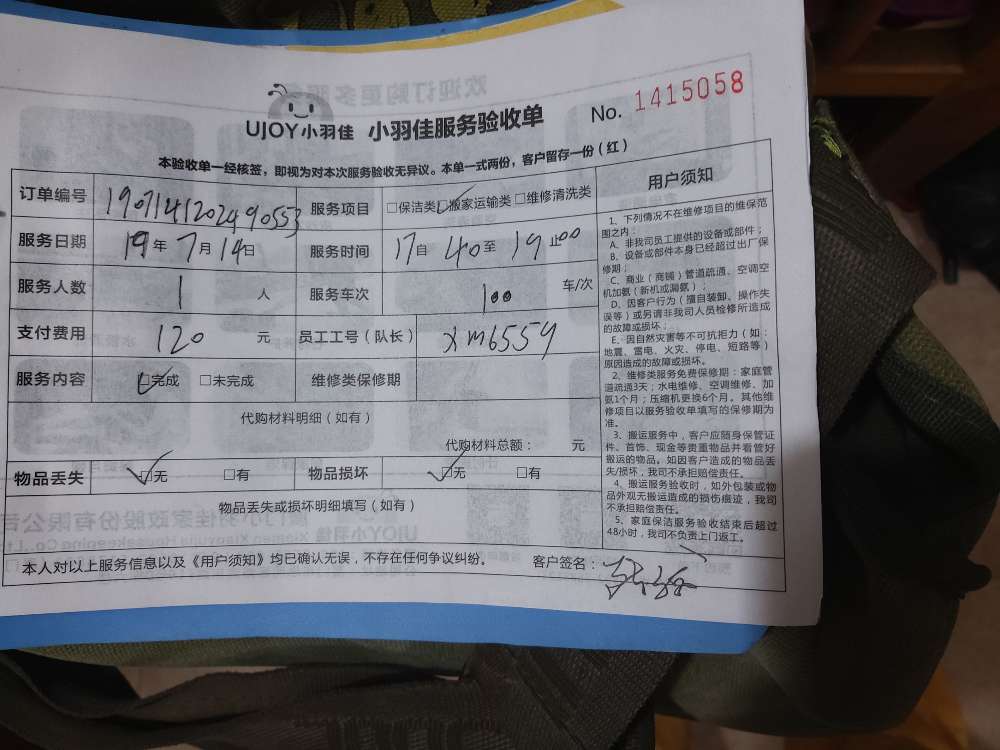 UJOY小羽佳 小羽佳服务验收单 No. 1415058
本验收单一经核签，即视为对本次服务验收无异议。本单一式两份，客户留存一份（红）
订单编号 1907141202490553 服务项目 □保洁类☑搬家运输类□维修清洗类
服务日期 19年7月14日 服务时间 17自40至19止00
服务人数 1 人 服务车次 100 车/次
支付费用 120 元 员工工号（队长） xm6559
服务内容 ☑完成 □未完成 维修类保修期
代购材料明细（如有）
代购材料总额： 元
物品丢失 ☑无 □有 物品损坏 ☑无 □有
物品丢失或损坏明细填写（如有）
本人对以上服务信息以及《用户须知》均已确认无误，不存在任何争议纠纷。 客户签名：
用户须知
1、下列情况不在维修项目的维保范
围之内：
A、非我司员工提供的设备或部件；
B、设备或部件本身已经超过出厂保
修期；
C、商业（商铺）管道疏通、空调空
机加氨（新机或漏氨）；
D、因客户行为（擅自装卸、操作失
误等）或另请非我司人员检修所造成
的故障或损坏；
E、因自然灾害等不可抗拒力（如：
地震、雷电、火灾、停电、短路等）
原因造成的故障或损坏。
2、维修类服务免费保修期：家庭管
道疏通3天；水电维修、空调维修、加
氨1个月；压缩机更换6个月。其他维
修项目以服务验收单填写的保修期为
准。
3、搬运服务中，客户应随身保管证
件、首饰、现金等贵重物品并看管好
搬运的物品。如因客户造成的物品丢
失/损坏，我司不承担赔偿责任。
4、搬运服务验收时，如外包装或物
品外观无搬运造成的损伤痕迹，我司
不承担赔偿责任。
5、家庭保洁服务验收结束后超过
48小时，我司不负责上门返工。